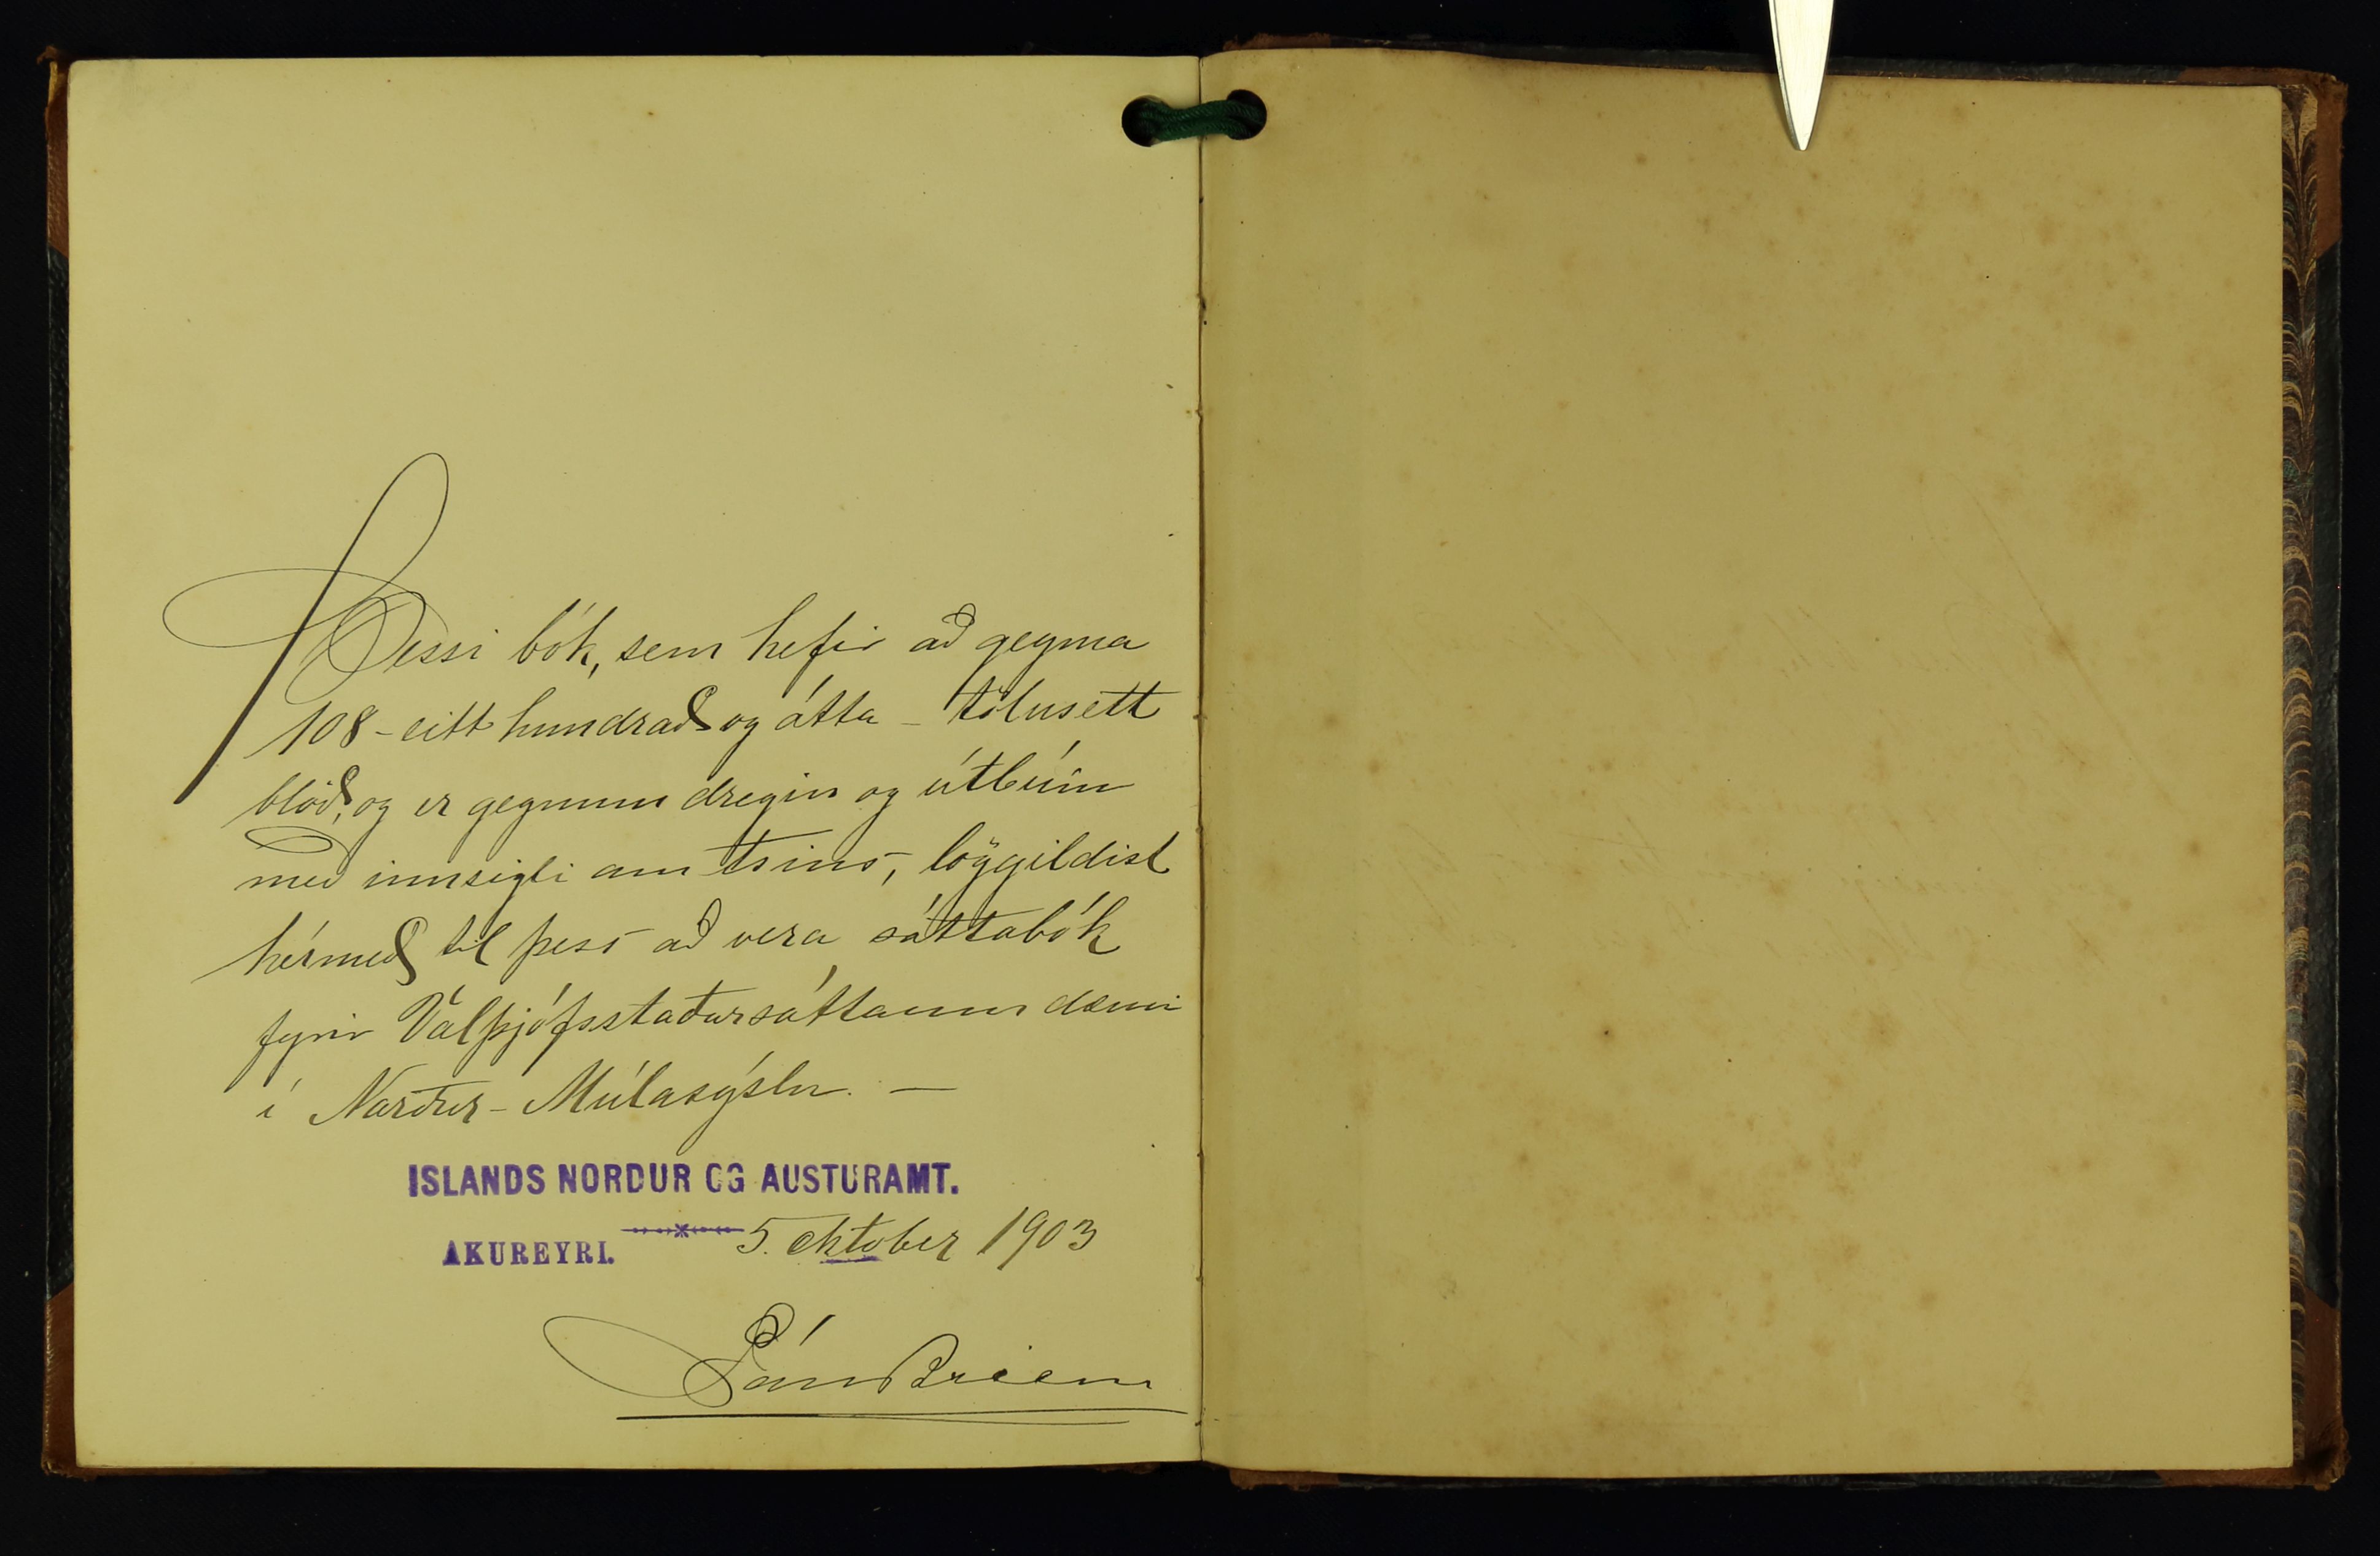 Þessi bók, sem hefir að geyma
108 - eitt hundrað og átta - tölusett
blöð, og er gegnum dregin og útbúin
með innsigli amtsins, löggildist
hérmeð til þess að vera sáttabók
fyrir Valþjófsstaðarsáttaumdæmi
í Norður-Múlasýslu. -
ISLANDS NORDUR OG AUSTURAMT.
AKUREYRI. 5. október 1903
Páll Briem